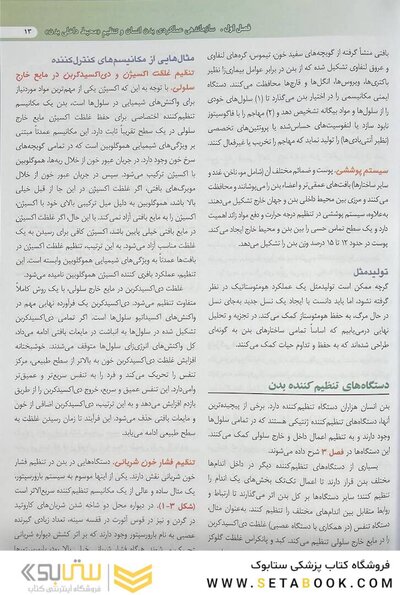 فصل اول . سازماندهی عملکردی بدن انسان و تنظیم «محیط داخلی بدن»
۱۳
بافتی منشأ گرفته از گویچه‌های سفید خون، تیموس، گره‌های لنفاوی
و عروق لنفاوی تشکیل شده که از بدن در برابر عوامل بیماری‌زا نظیر
باکتری‌ها، ویروس‌ها، انگل‌ها و قارچ‌ها محافظت می‌کنند. دستگاه
ایمنی مکانیسمی را در اختیار بدن می‌گذارد تا (۱) سلول‌های خودی
را از سلول‌ها و مواد بیگانه تشخیص دهد و (۲) مهاجم را با فاگوسیتوز
نابود سازد یا لنفوسیت‌های حساس‌شده یا پروتئین‌های تخصصی
(نظیر آنتی‌بادی‌ها) را تولید نماید که مهاجم را تخریب یا غیرفعال کنند.
سیستم پوششی. پوست و ضمائم مختلف آن (شامل مو، ناخن، غدد و
سایر ساختارها) بافت‌های عمقی‌تر و اعضا بدن را می‌پوشانند و محافظت
می‌کنند و مرزی بین محیط داخلی بدن و جهان خارج تشکیل می‌دهند.
به‌علاوه، سیستم پوششی در تنظیم درجه حرارت و دفع مواد زائد اهمیت
دارد و یک سطح تماس حسی را بین بدن و محیط خارج ایجاد می‌کند.
پوست در حدود ۱۲ تا ۱۵ درصد وزن بدن را تشکیل می‌دهد.
تولیدمثل
گرچه ممکن است تولیدمثل یک عملکرد هوموستاتیک در نظر
گرفته نشود، اما باید دانست با ایجاد یک نسل جدید به‌جای نسل
در حال مرگ، به حفظ هومئوستاز کمک می‌کند. در تجزیه و تحلیل
نهایی درمی‌یابیم که اساساً تمامی ساختارهای بدن به گونه‌ای
طراحی شده‌اند که به حفظ و تداوم حیات کمک می‌کنند.
دستگاه‌های تنظیم‌کننده بدن
بدن انسان هزاران دستگاه تنظیم‌کننده دارد. برخی از پیچیده‌ترین
آنها، دستگاه‌های تنظیم‌کننده ژنتیکی هستند که در تمامی سلول‌ها
وجود دارند و به تنظیم اعمال داخل و خارج سلولی کمک می‌کنند.
این دستگاه‌ها در فصل ۳ شرح داده می‌شوند.
بسیاری از دستگاه‌های تنظیم‌کننده دیگر در داخل اندام‌ها
مختلف بدن قرار دارند تا اعمال تک‌تک بخش‌های یک اندام را
تنظیم کنند؛ سایر دستگاه‌ها بر کل بدن اثر می‌گذارند تا ارتباط و
روابط متقابل بین اندام‌های مختلف را تنظیم کنند. به‌عنوان مثال،
دستگاه تنفس (در همکاری با دستگاه عصبی) غلظت دی‌اکسیدکربن
را در مایع خارج سلولی تنظیم می‌کند. کبد و پانکراس غلظت گلوکز
مثال‌هایی از مکانیسم‌های کنترل‌کننده
تنظیم غلظت اکسیژن و دی‌اکسیدکربن در مایع خارج
سلولی. با توجه به این که اکسیژن یکی از مهم‌ترین مواد موردنیاز
برای واکنش‌های شیمیایی در سلول‌ها است، بدن یک مکانیسم
تنظیم‌کننده اختصاصی برای حفظ غلظت اکسیژن مایع خارج
سلولی در یک سطح تقریباً ثابت دارد. این مکانیسم عمدتاً مبتنی
بر ویژگی‌های شیمیایی هموگلوبین است که در تمامی گویچه‌های
سرخ خون وجود دارد. در جریان عبور خون از خلال ریه‌ها، هموگلوبین
با اکسیژن ترکیب می‌شود. سپس در جریان عبور خون از خلال
مویرگ‌های بافتی، اگر غلظت اکسیژن در این جا از قبل خیلی
بالا باشد، هموگلوبین به دلیل میل ترکیبی بالای خود با اکسیژن،
اکسیژن را به مایع بافتی آزاد نمی‌کند. با این حال، اگر غلظت اکسیژن
در مایع بافتی خیلی پایین باشد، اکسیژن کافی برای رسیدن به یک
غلظت مناسب آزاد می‌شود. به این ترتیب، تنظیم غلظت اکسیژن در
بافت‌ها عمدتاً به ویژگی‌های شیمیایی هموگلوبین وابسته است. این
تنظیم، عملکرد بافری کننده اکسیژن هموگلوبین نامیده می‌شود.
غلظت دی‌اکسیدکربن در مایع خارج سلولی، با یک روش کاملاً
متفاوت تنظیم می‌شود. دی‌اکسیدکربن یک فرآورده نهایی مهم در
واکنش‌های اکسیداتیو سلول‌ها است. اگر تمامی دی‌اکسیدکربن
تشکیل شده در سلول‌ها به انباشت در مایعات بافتی ادامه می‌داد،
کل واکنش‌های انرژی‌زای سلول‌ها متوقف می‌شدند. خوشبختانه
افزایش غلظت دی‌اکسیدکربن خون به بالاتر از سطح طبیعی، مرکز
تنفس را تحریک می‌کند و فرد را به تنفس سریع‌تر و عمیق‌تر
وامی‌دارد. این تنفس عمیق و سریع، خروج دی‌اکسیدکربن را از طریق
بازدم افزایش می‌دهد و به این ترتیب، دی‌اکسیدکربن اضافی از خون
و مایعات بافتی حذف می‌شود. این فرآیند تا زمان رسیدن غلظت به
سطح طبیعی ادامه می‌یابد.
تنظیم فشار خون شریانی. دستگاه‌هایی در تنظیم فشار
خون شریانی نقش دارند. یکی از اینها موسوم به سیستم بارورسپتور،
یک مثال ساده و عالی از یک مکانیسم تنظیم‌کننده سریع‌الاثر است
(شکل ۳-۱). در دیواره محل دو شاخه شدن شریان‌های کاروتید
در گردن و نیز در قوس آئورت در قفسه سینه، تعداد زیادی گیرنده
فروشگاه کتاب پزشکی ستابوک
WWW.SETABOOK.COM
ستابوک
فروشگاه اینترنتی کتاب